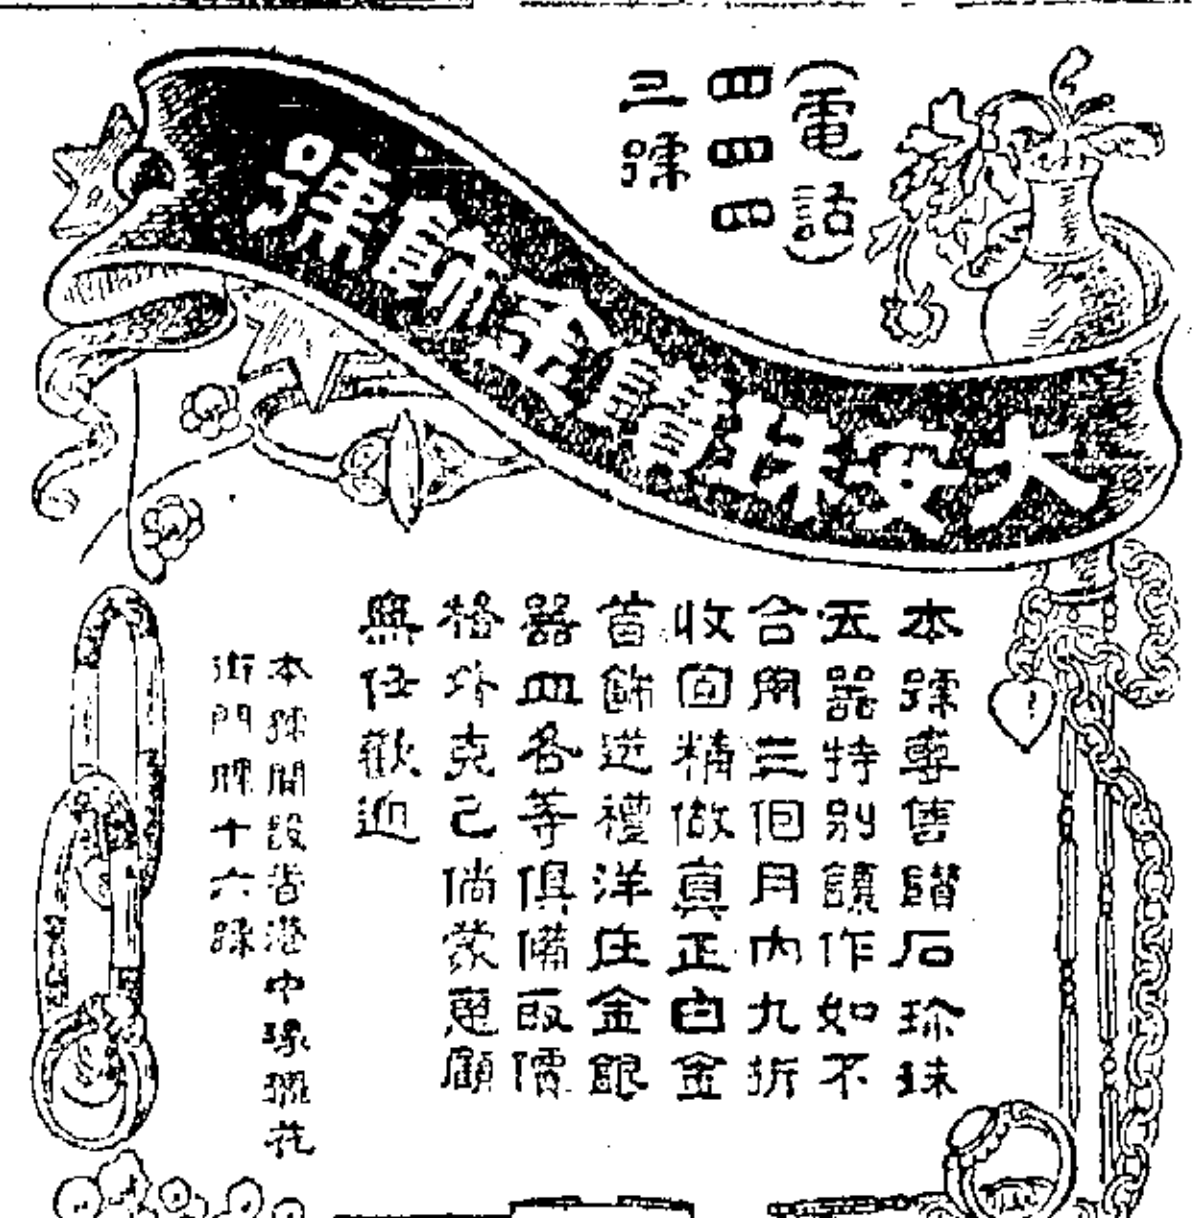 (電話)
四四四
三號
大安珠鑽金飾號
本號專售鑽石珍珠
玉器特別鑲作如不
合用三個月內九折
收回精做真正白金
首飾送禮洋庄金銀
器皿各等俱備取價
格外克己倘蒙惠顧
無任歡迎
本號開設香港中環擺花
街門牌十六號